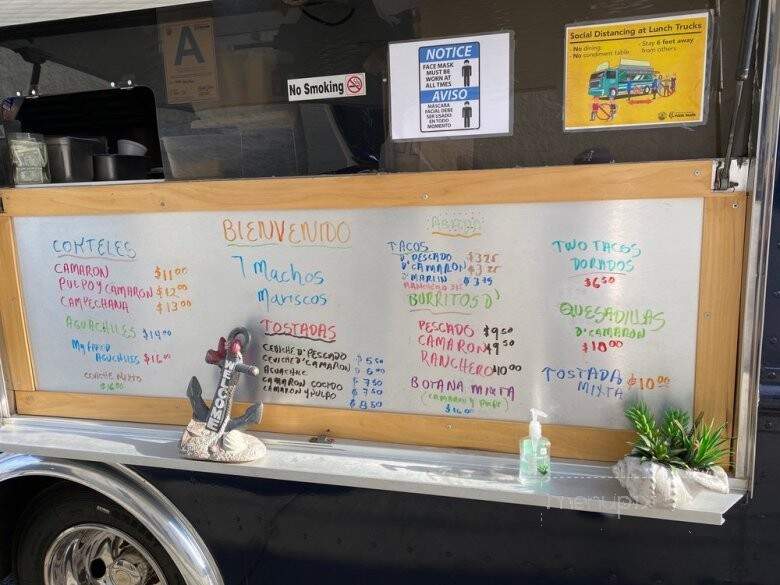 A
No Smoking
NOTICE
FACE MASK
MUST BE
WORN AT
ALL TIMES
AVISO
MÁSCARA
FACIAL DEBE
SER USADO
EN TODO
MOMENTO
Social Distancing at Lunch Trucks
- No dining.
- No condiment table.
- Stay 6 feet away
from others
COKTELES
CAMARON $11.00
PULPO Y CAMARON $12.00
CAMPECHANA $13.00
AGUACHILES $14.00
AGUACHILES $16.00
CEVICHE MIXTO
$16.00
BIENVENIDO
7 Machos
Mariscos
TOSTADAS
CEVICHE D'PESCADO $5.50
CEVICHE D'CAMARON
AGUACHILE $7.50
CAMARON COCIDO $7.50
CAMARON Y PULPO $8.50
TACOS
D'PESCADO $3.25
D'CAMARON $3.25
D'MARLIN $3.75
BURRITOS D'
PESCADO $9.50
CAMARON $9.50
RANCHERO $10.00
BOTANA MIXTA
(CAMARON Y PULPO)
$16.00
TWO TACOS
DORADOS
$6.50
QUESADILLAS
D'CAMARON
$10.00
TOSTADA $10.00
MIXTA
WELCOME
menupix